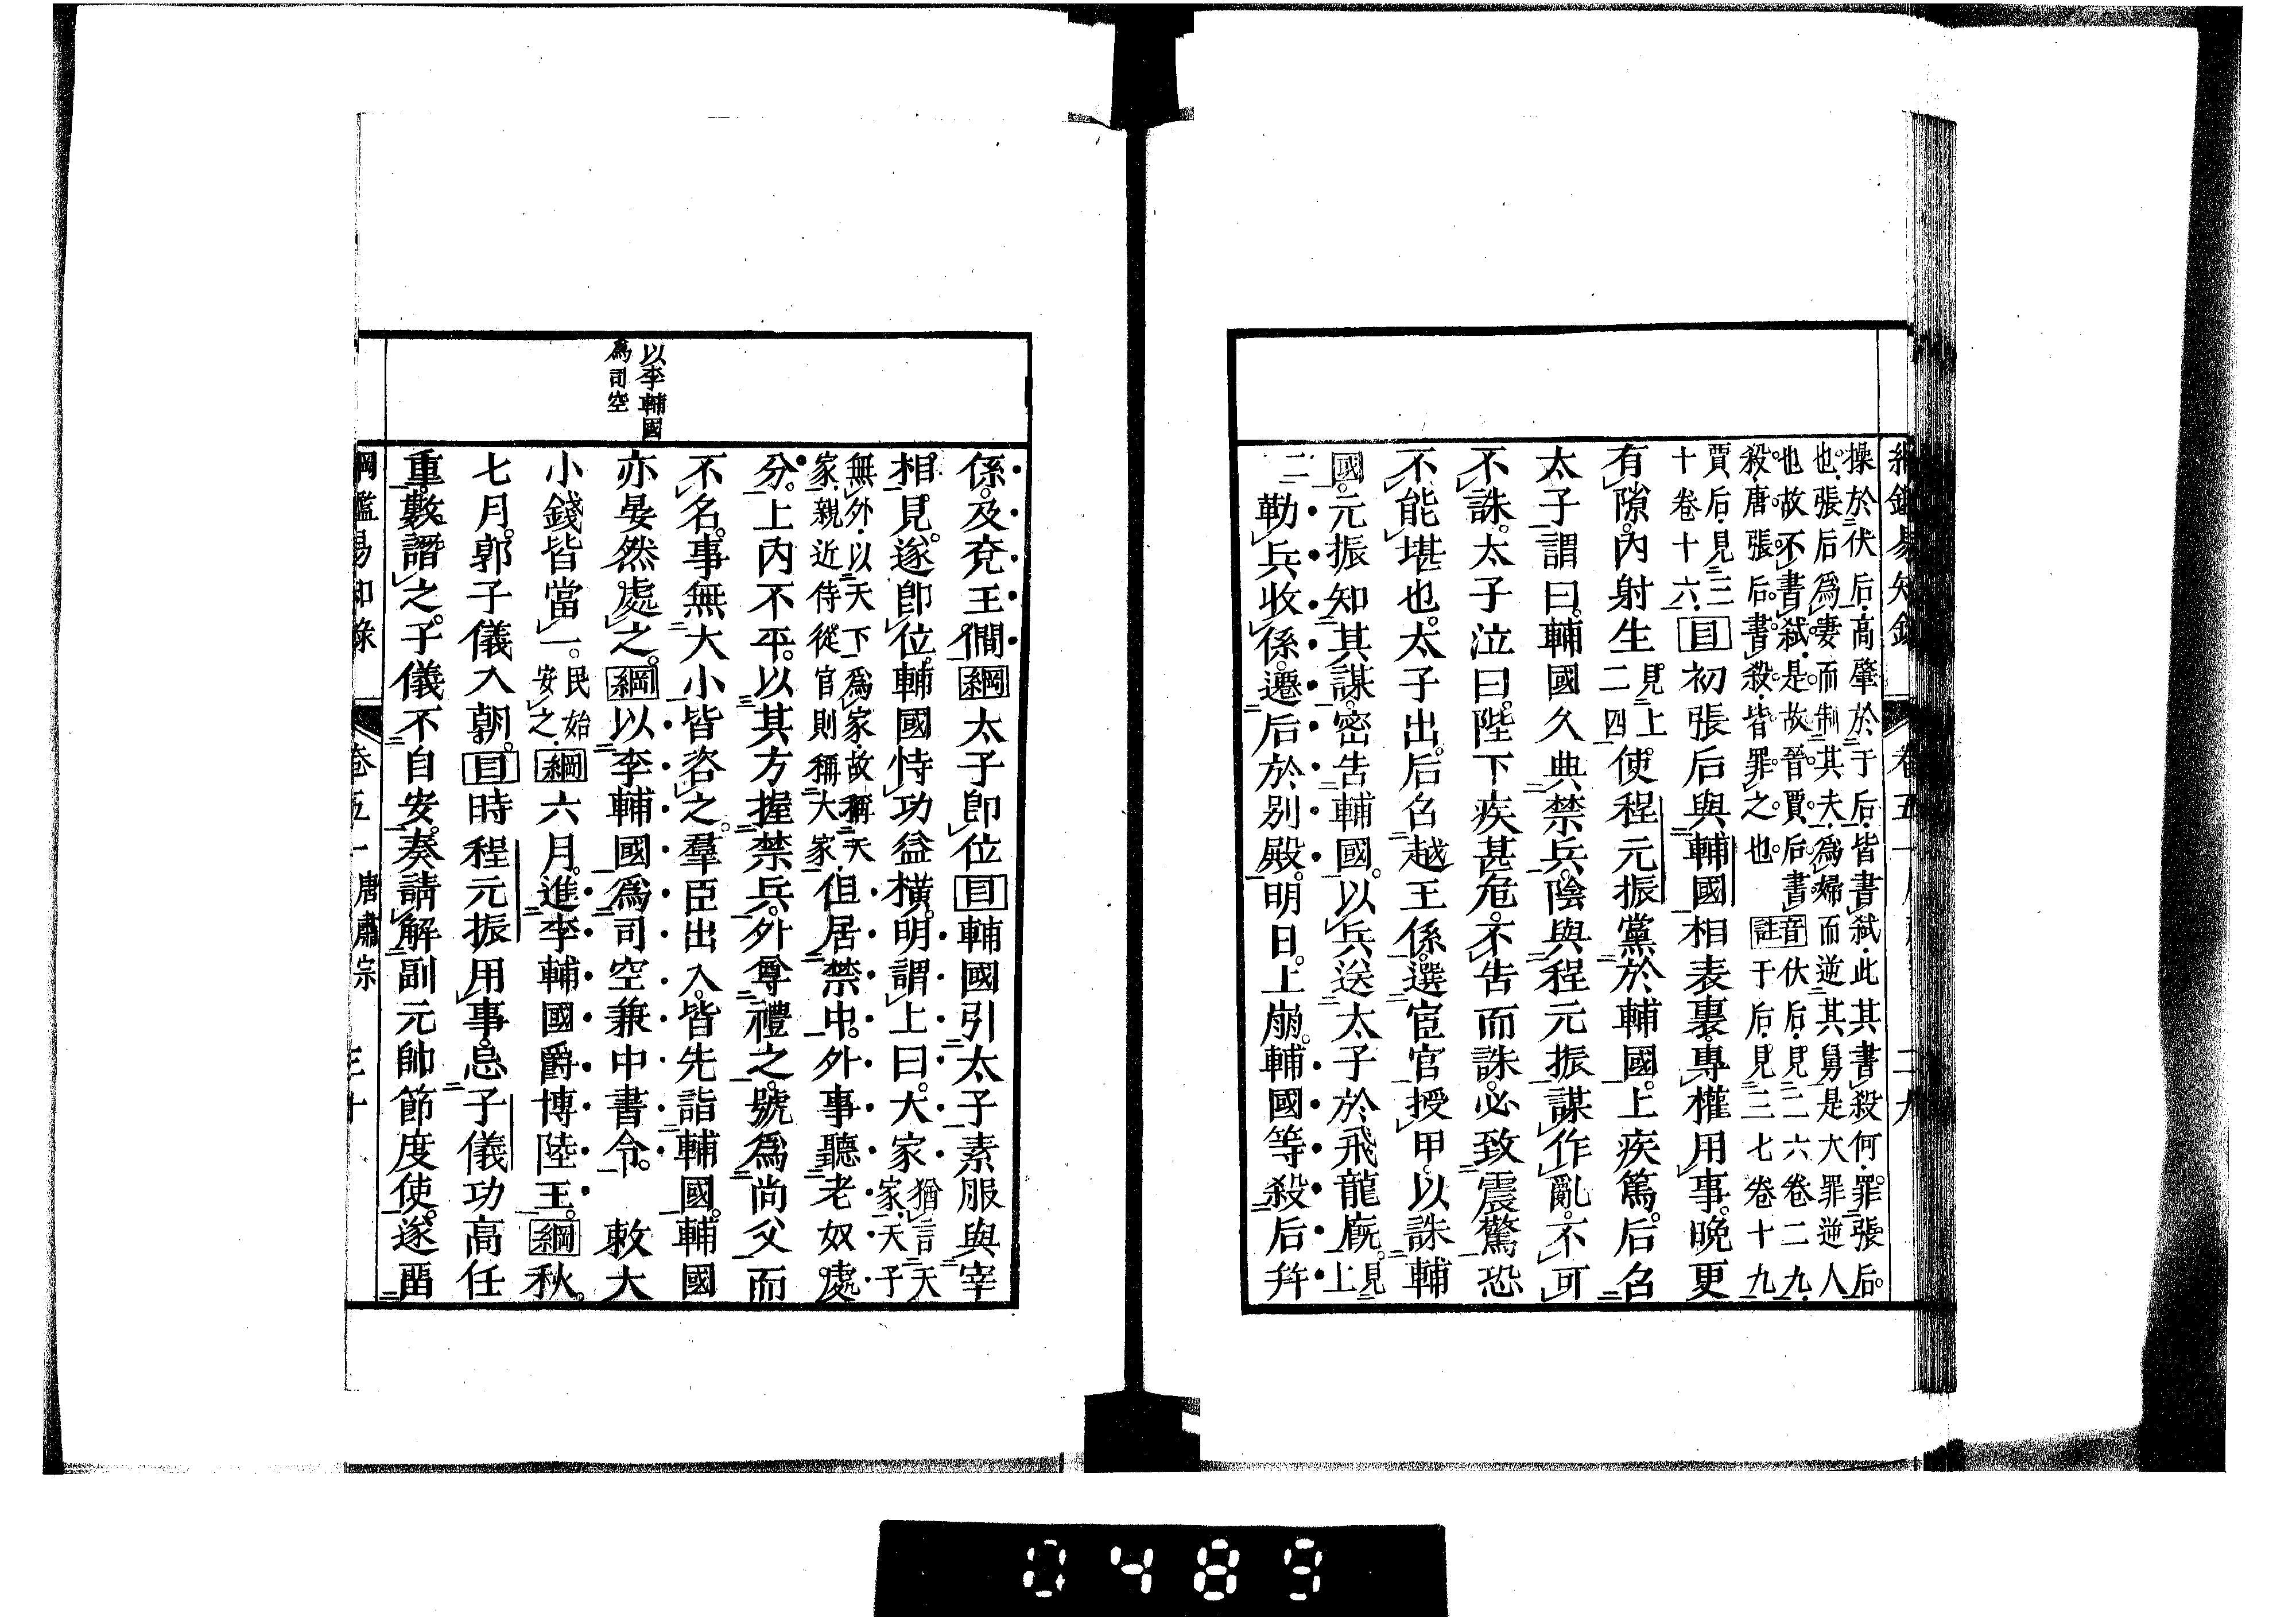 綱鑑易知錄　卷五一
操於伏后高肇於于后皆書弑此其書殺何罪張后
也張后爲妻而制其夫爲婦而逆其舅是大罪逆人
也故不書弑是故晉賈后書
殺唐張后書殺皆罪之也
音伏后見二六卷二九
註于后見三七卷十九
賈后見三
十卷十六
目初張后與輔國相表裏專權用事晚更
有隙內射生
見上
二四
使程元振黨於輔國上疾篤后召
太子謂曰輔國久典禁兵陰與程元振謀作亂不可
不誅太子泣曰陛下疾甚危不告而誅必致震驚恐
不能堪也太子出后召越王係選宦官授甲以誅輔
國元振知其謀密告輔國以兵送太子於飛龍廄
見
上
二
勒兵收係遷后於別殿明日上崩輔國等殺后幷
係及兗王僩綱太子卽位目輔國引太子素服與宰
相見遂卽位輔國恃功益橫明謂上曰大家
猶言天
家天子
無外以天下爲家故稱天
家親近侍從官則稱大家
但居禁中外事聽老奴處
分上內不平以其方握禁兵外尊禮之號爲尚父而
不名事無大小皆咨之羣臣出入皆先詣輔國輔國
亦晏然處之綱以李輔國爲司空兼中書令　敕大
以李輔國
爲司空
小錢皆當一
民始
安之
綱六月進李輔國爵博陸王綱秋
七月郭子儀入朝目時程元振用事忌子儀功高任
重數譖之子儀不自安奏請解副元帥節度使遂畱
綱鑑易知錄　卷五一　唐肅宗　三十
0489